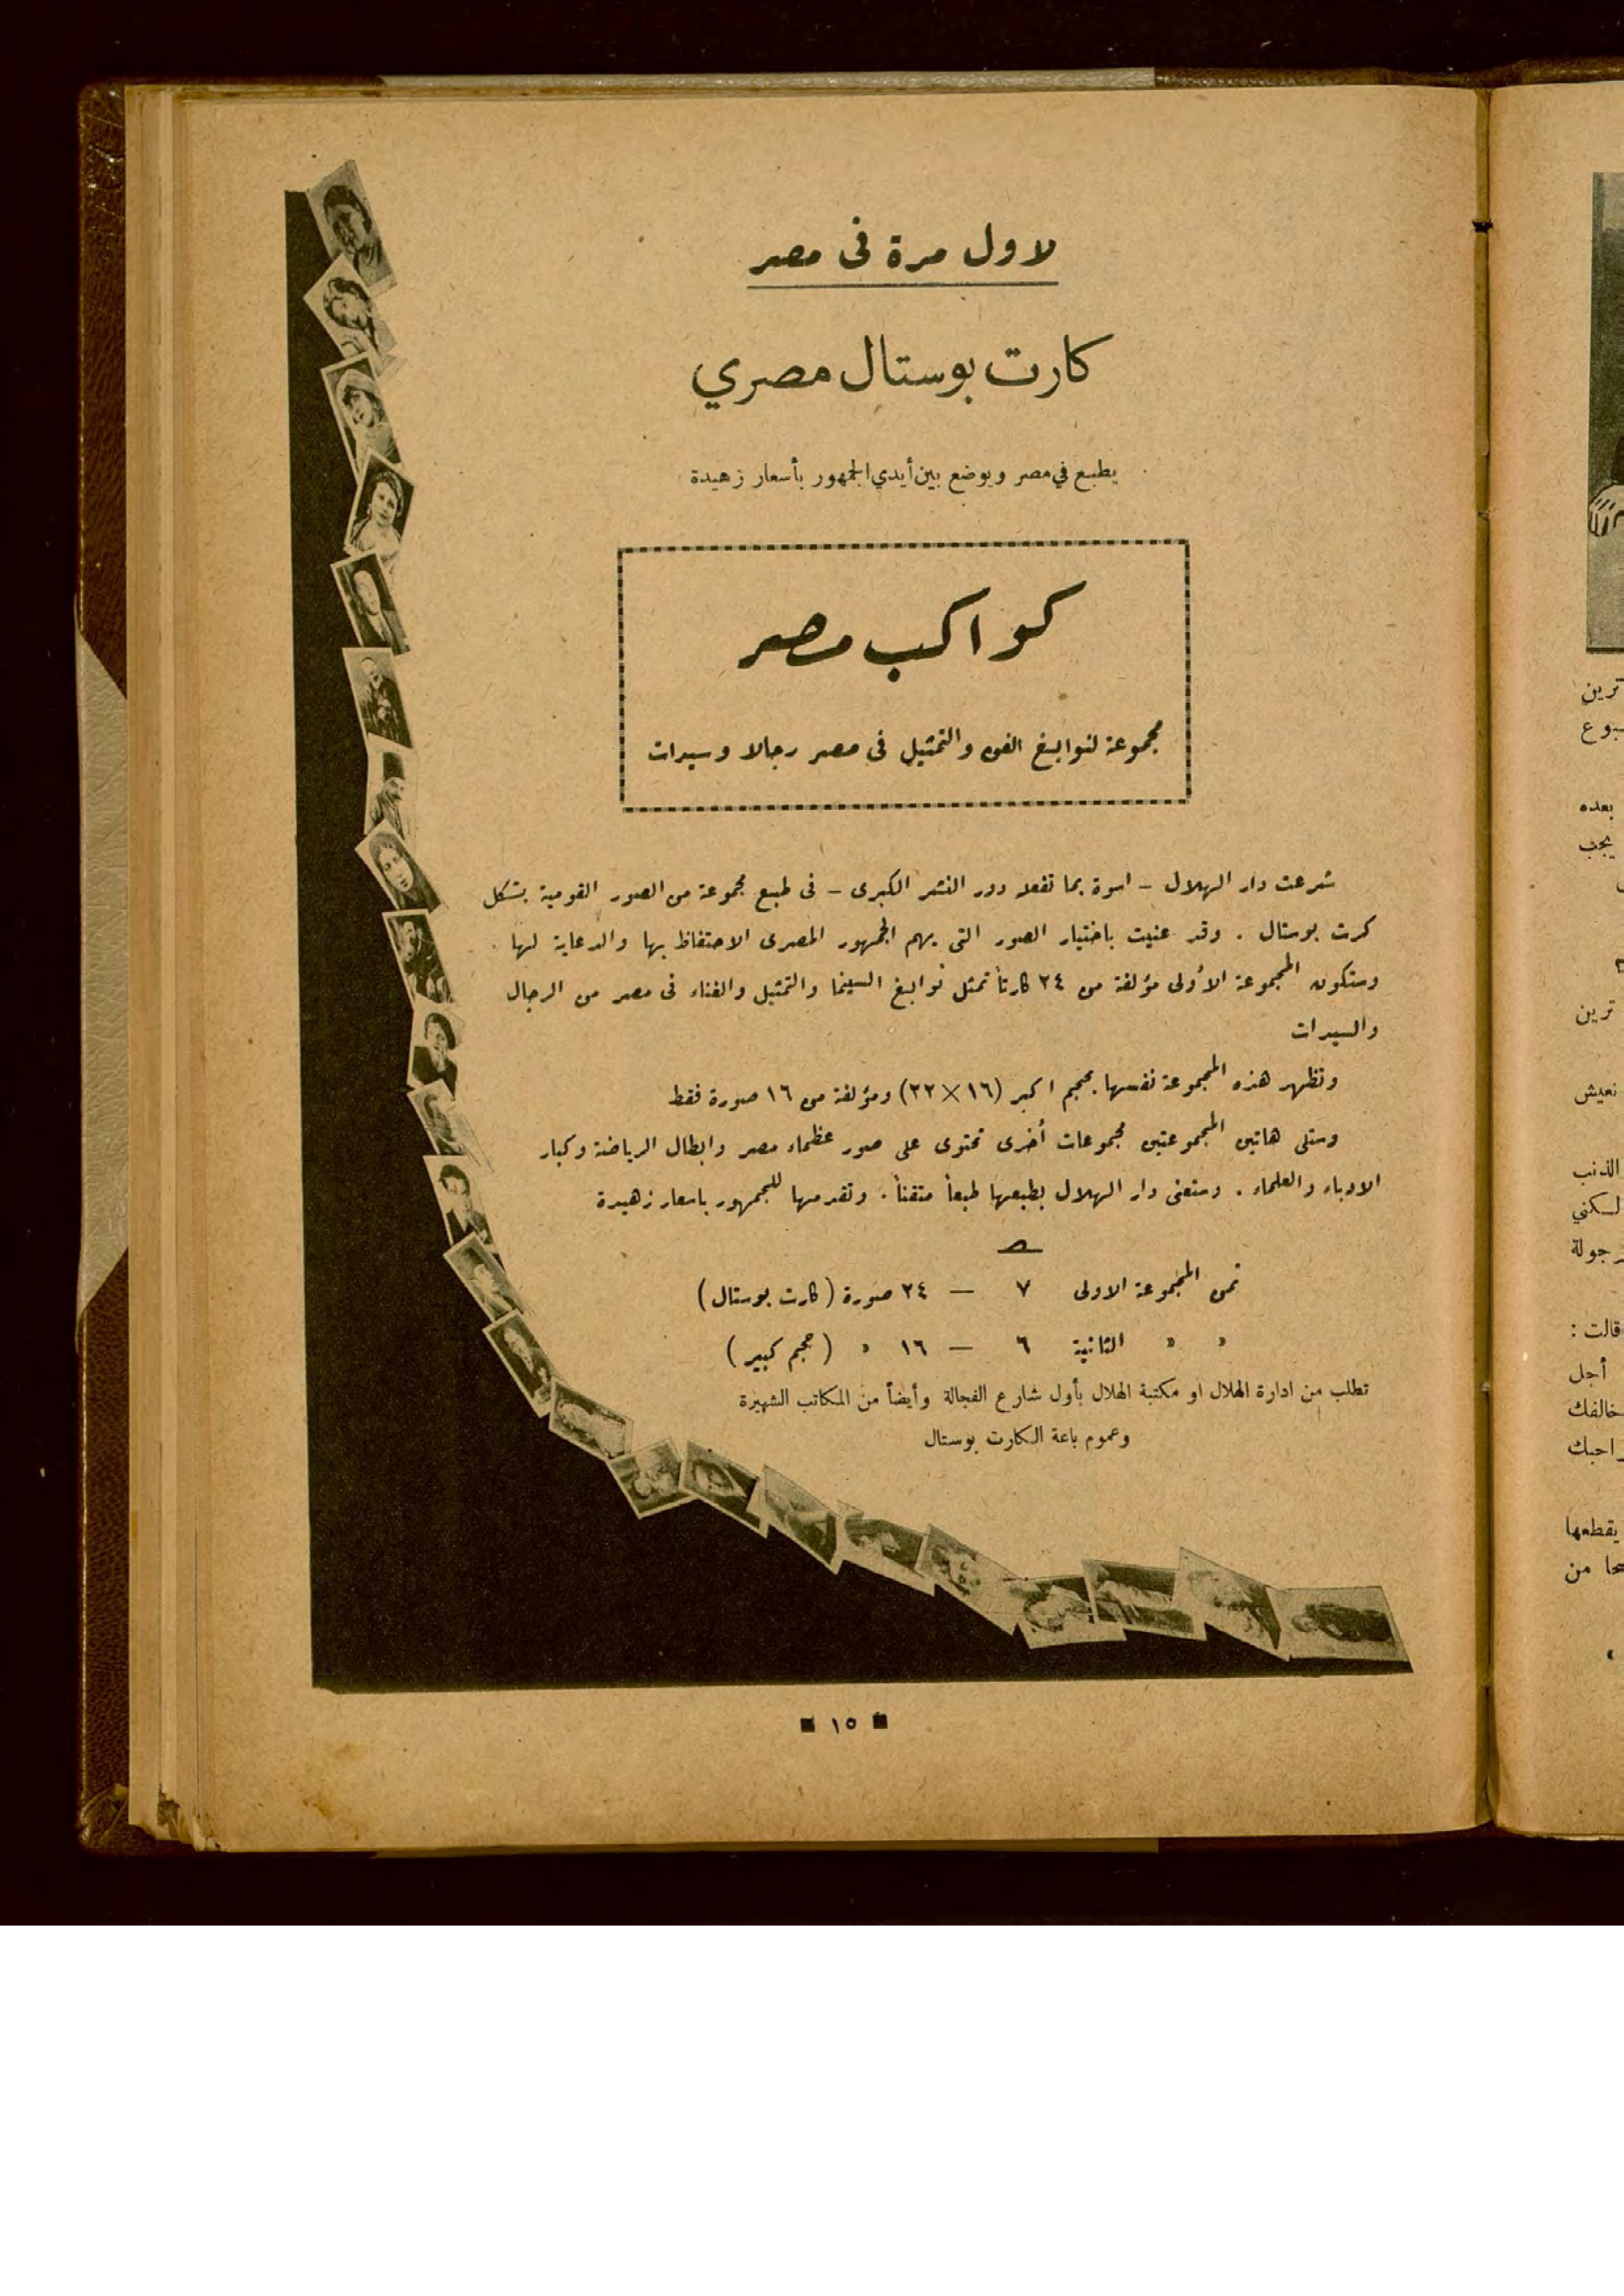 لاول مرة فى مصر
كارت بوستال مصري
يطبع في مصر ويوضع بين أيدي الجمهور بأسعار زهيدة
كواكب مصر
مجموعة لنوابغ الفن والتمثيل فى مصر رجالا وسيدات
شرعت دار الهلال – اسوة بما تفعله دور النشر الكبرى – فى طبع مجموعة من الصور القومية بشكل
كرت بوستال . وقد عنيت باختيار الصور التى يهم الجمهور المصرى الاحتفاظ بها والدعاية لها .
وستكون المجموعة الأولى مؤلفة من ٢٤ كارتاً تمثل نوابغ السينما والتمثيل والغناء فى مصر من الرجال
والسيدات
وتظهر هذه المجموعة نفسها بحجم اكبر (١٦×٢٢) ومؤلفة من ١٦ صورة فقط
وستلى هاتين المجموعتين مجموعات أخرى تحتوى على صور عظماء مصر وابطال الرياضة وكبار
الادباء والعلماء . وستعنى دار الهلال بطبعها طبعاً متقناً . وتقدمها للجمهور باسعار زهيدة
ثمن المجموعة الاولى ٧ — ٢٤ صورة (كارت بوستال)
» » الثانية ٦ — ١٦ » (حجم كبير)
تطلب من ادارة الهلال او مكتبة الهلال بأول شارع الفجالة وأيضاً من المكاتب الشهيرة
وعموم باعة الكارت بوستال
١٥
ترين
بعده
يجب
ترين
نعيش
الذنب
لكني
قالت :
أجل
يقطعها